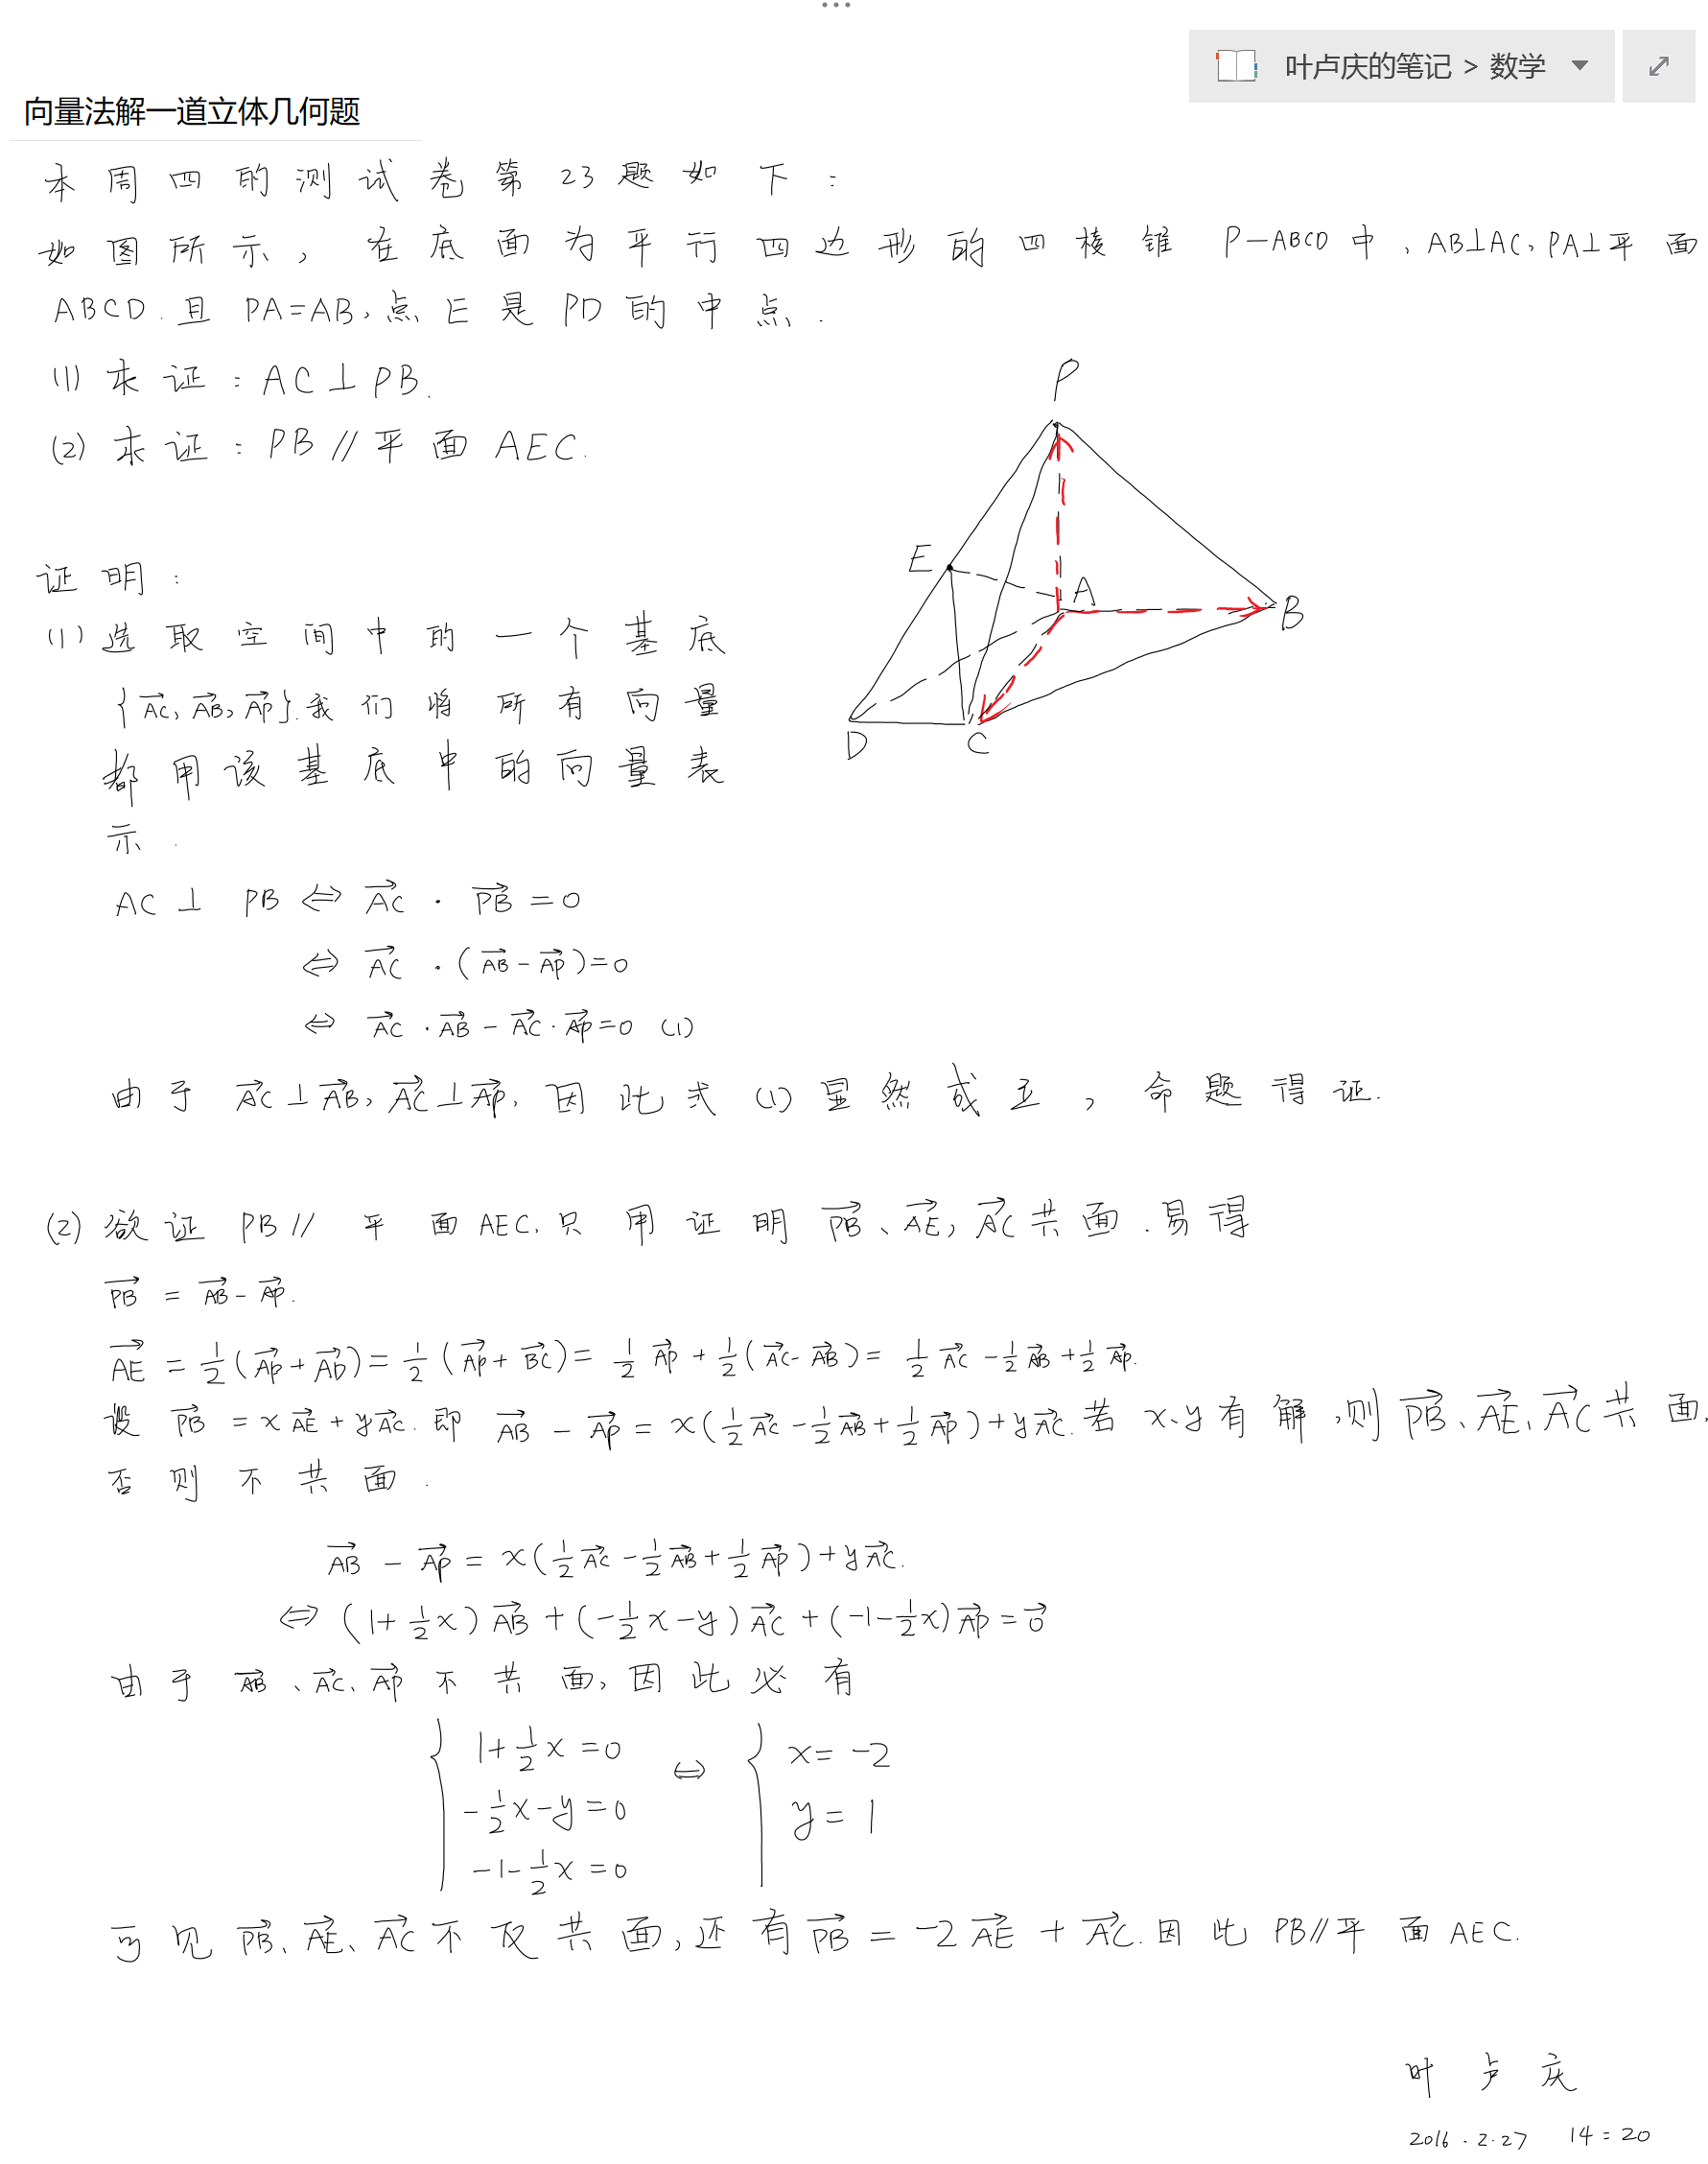 叶卢庆的笔记 > 数学
向量法解一道立体几何题
本周四的测试卷第23题如下:
如图所示,在底面为平行四边形的四棱锥P-ABCD中,AB⊥AC,PA⊥平面
ABCD.且PA=AB,点E是PD的中点.
(1)求证:AC⊥PB.
(2)求证:PB∥平面AEC.
P
E
A
B
D
C
证明:
(1)选取空间中的一个基底
{\vec{AC},\vec{AB},\vec{AP}}.我们将所有向量
都用该基底中的向量表
示.
AC⊥PB⇔\vec{AC}·\vec{PB}=0
⇔\vec{AC}·(\vec{AB}-\vec{AP})=0
⇔\vec{AC}·\vec{AB}-\vec{AC}·\vec{AP}=0 (1)
由于\vec{AC}⊥\vec{AB},\vec{AC}⊥\vec{AP},因此式(1)显然成立,命题得证.
(2)欲证PB∥平面AEC,只用证明\vec{PB}、\vec{AE},\vec{AC}共面.易得
\vec{PB}=\vec{AB}-\vec{AP}.
\vec{AE}=\frac{1}{2}(\vec{AP}+\vec{AD})=\frac{1}{2}(\vec{AP}+\vec{BC})=\frac{1}{2}\vec{AP}+\frac{1}{2}(\vec{AC}-\vec{AB})=\frac{1}{2}\vec{AC}-\frac{1}{2}\vec{AB}+\frac{1}{2}\vec{AP}.
设\vec{PB}=x\vec{AE}+y\vec{AC}.即\vec{AB}-\vec{AP}=x(\frac{1}{2}\vec{AC}-\frac{1}{2}\vec{AB}+\frac{1}{2}\vec{AP})+y\vec{AC}.若x、y有解,则\vec{PB}、\vec{AE}、\vec{AC}共面,
否则不共面.
\vec{AB}-\vec{AP}=x(\frac{1}{2}\vec{AC}-\frac{1}{2}\vec{AB}+\frac{1}{2}\vec{AP})+y\vec{AC}.
⇔(1+\frac{1}{2}x)\vec{AB}+(-\frac{1}{2}x-y)\vec{AC}+(-1-\frac{1}{2}x)\vec{AP}=\vec{0}
由于\vec{AB}、\vec{AC}、\vec{AP}不共面,因此必有
1+\frac{1}{2}x=0 ⇔ x=-2
-\frac{1}{2}x-y=0 y=1
-1-\frac{1}{2}x=0
可见\vec{PB}、\vec{AE}、\vec{AC}不仅共面,还有\vec{PB}=-2\vec{AE}+\vec{AC}.因此PB∥平面AEC.
叶卢庆
2016.2.27 14:20